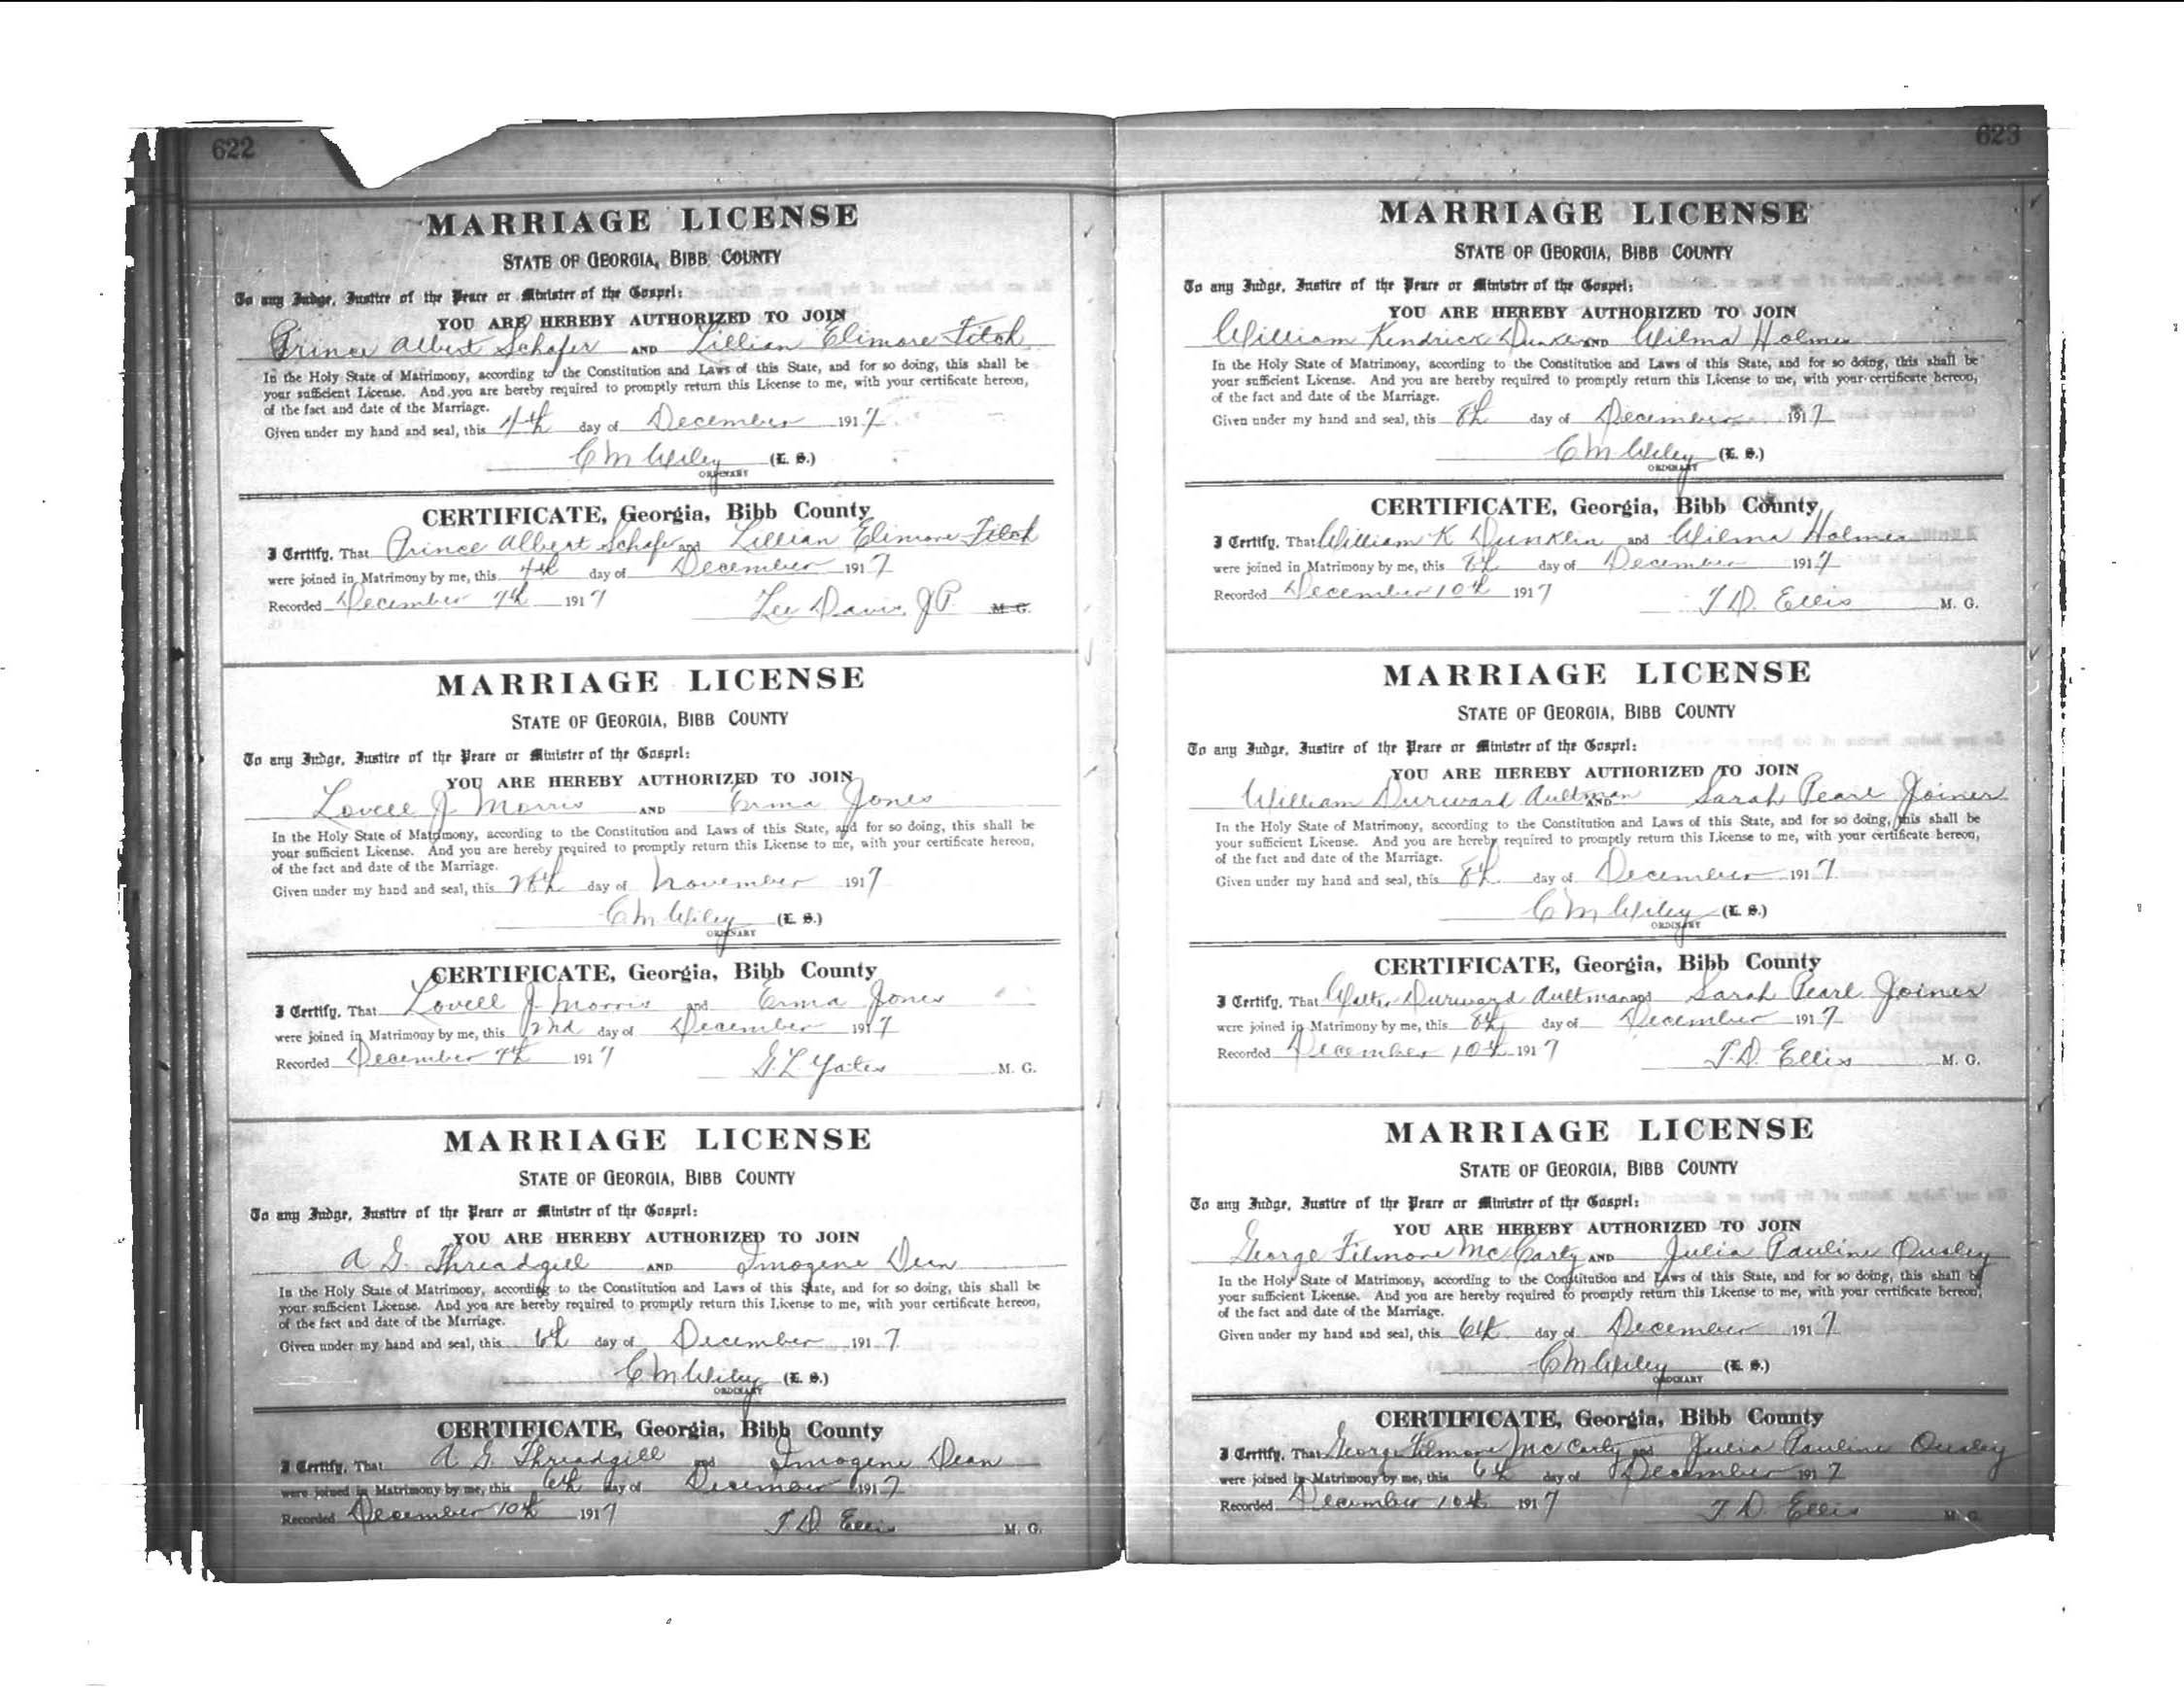 622
MARRIAGE LICENSE
STATE OF GEORGIA, BIBB COUNTY
To any Judge, Justice of the Peace or Minister of the Gospel:
YOU ARE HEREBY AUTHORIZED TO JOIN
Prince Albert Schafer AND Lillian Elimore Fitch
In the Holy State of Matrimony, according to the Constitution and Laws of this State, and for so doing, this shall be
your sufficient License. And you are hereby required to promptly return this License to me, with your certificate hereon,
of the fact and date of the Marriage.
Given under my hand and seal, this day of December 1917
C M Wiley (L. S.)
ORDINARY
CERTIFICATE, Georgia, Bibb County
I Certify, That Prince Albert Schafer and Lillian Elimore Fitch
were joined in Matrimony by me, this day of December 1917
Recorded December 7th 1917
Lee Davis J.P. M. G.
MARRIAGE LICENSE
STATE OF GEORGIA, BIBB COUNTY
To any Judge, Justice of the Peace or Minister of the Gospel:
YOU ARE HEREBY AUTHORIZED TO JOIN
Lovell J Morris AND Erma Jones
In the Holy State of Matrimony, according to the Constitution and Laws of this State, and for so doing, this shall be
your sufficient License. And you are hereby required to promptly return this License to me, with your certificate hereon,
of the fact and date of the Marriage.
Given under my hand and seal, this 28th day of November 1917
C M Wiley (L. S.)
ORDINARY
CERTIFICATE, Georgia, Bibb County
I Certify, That Lovell J Morris and Erma Jones
were joined in Matrimony by me, this 2nd day of December 1917
Recorded December 7th 1917
G. L Yates M. G.
MARRIAGE LICENSE
STATE OF GEORGIA, BIBB COUNTY
To any Judge, Justice of the Peace or Minister of the Gospel:
YOU ARE HEREBY AUTHORIZED TO JOIN
A G. Threadgill AND Imogene Dean
In the Holy State of Matrimony, according to the Constitution and Laws of this State, and for so doing, this shall be
your sufficient License. And you are hereby required to promptly return this License to me, with your certificate hereon,
of the fact and date of the Marriage.
Given under my hand and seal, this 6th day of December 1917
C M Wiley (L. S.)
ORDINARY
CERTIFICATE, Georgia, Bibb County
I Certify, That A G. Threadgill and Imogene Dean
were joined in Matrimony by me, this 6th day of December 1917
Recorded December 10th 1917
T D. Ellis M. G.
623
MARRIAGE LICENSE
STATE OF GEORGIA, BIBB COUNTY
To any Judge, Justice of the Peace or Minister of the Gospel:
YOU ARE HEREBY AUTHORIZED TO JOIN
William Kendrick AND Wilma Holmes
In the Holy State of Matrimony, according to the Constitution and Laws of this State, and for so doing, this shall be
your sufficient License. And you are hereby required to promptly return this License to me, with your certificate hereon,
of the fact and date of the Marriage.
Given under my hand and seal, this 8th day of December 1917
C M Wiley (L. S.)
ORDINARY
CERTIFICATE, Georgia, Bibb County
I Certify, That William K Dunklin and Wilma Holmes
were joined in Matrimony by me, this 8th day of December 1917
Recorded December 10th 1917
T. D. Ellis M. G.
MARRIAGE LICENSE
STATE OF GEORGIA, BIBB COUNTY
To any Judge, Justice of the Peace or Minister of the Gospel:
YOU ARE HEREBY AUTHORIZED TO JOIN
William Durward Aultman AND Sarah Pearl Joiner
In the Holy State of Matrimony, according to the Constitution and Laws of this State, and for so doing, this shall be
your sufficient License. And you are hereby required to promptly return this License to me, with your certificate hereon,
of the fact and date of the Marriage.
Given under my hand and seal, this 8th day of December 1917
C M Wiley (L. S.)
ORDINARY
CERTIFICATE, Georgia, Bibb County
I Certify, That Durward Aultman and Sarah Pearl Joiner
were joined in Matrimony by me, this 8th day of December 1917
Recorded December 10th 1917
T. D. Ellis M. G.
MARRIAGE LICENSE
STATE OF GEORGIA, BIBB COUNTY
To any Judge, Justice of the Peace or Minister of the Gospel:
YOU ARE HEREBY AUTHORIZED TO JOIN
George Filmore McCarty AND Julia Pauline Ousley
In the Holy State of Matrimony, according to the Constitution and Laws of this State, and for so doing, this shall be
your sufficient License. And you are hereby required to promptly return this License to me, with your certificate hereon,
of the fact and date of the Marriage.
Given under my hand and seal, this 6th day of December 1917
C M Wiley (L. S.)
ORDINARY
CERTIFICATE, Georgia, Bibb County
I Certify, That George Filmore McCarty and Julia Pauline Ousley
were joined in Matrimony by me, this 6th day of December 1917
Recorded December 10th 1917
T. D. Ellis M. G.